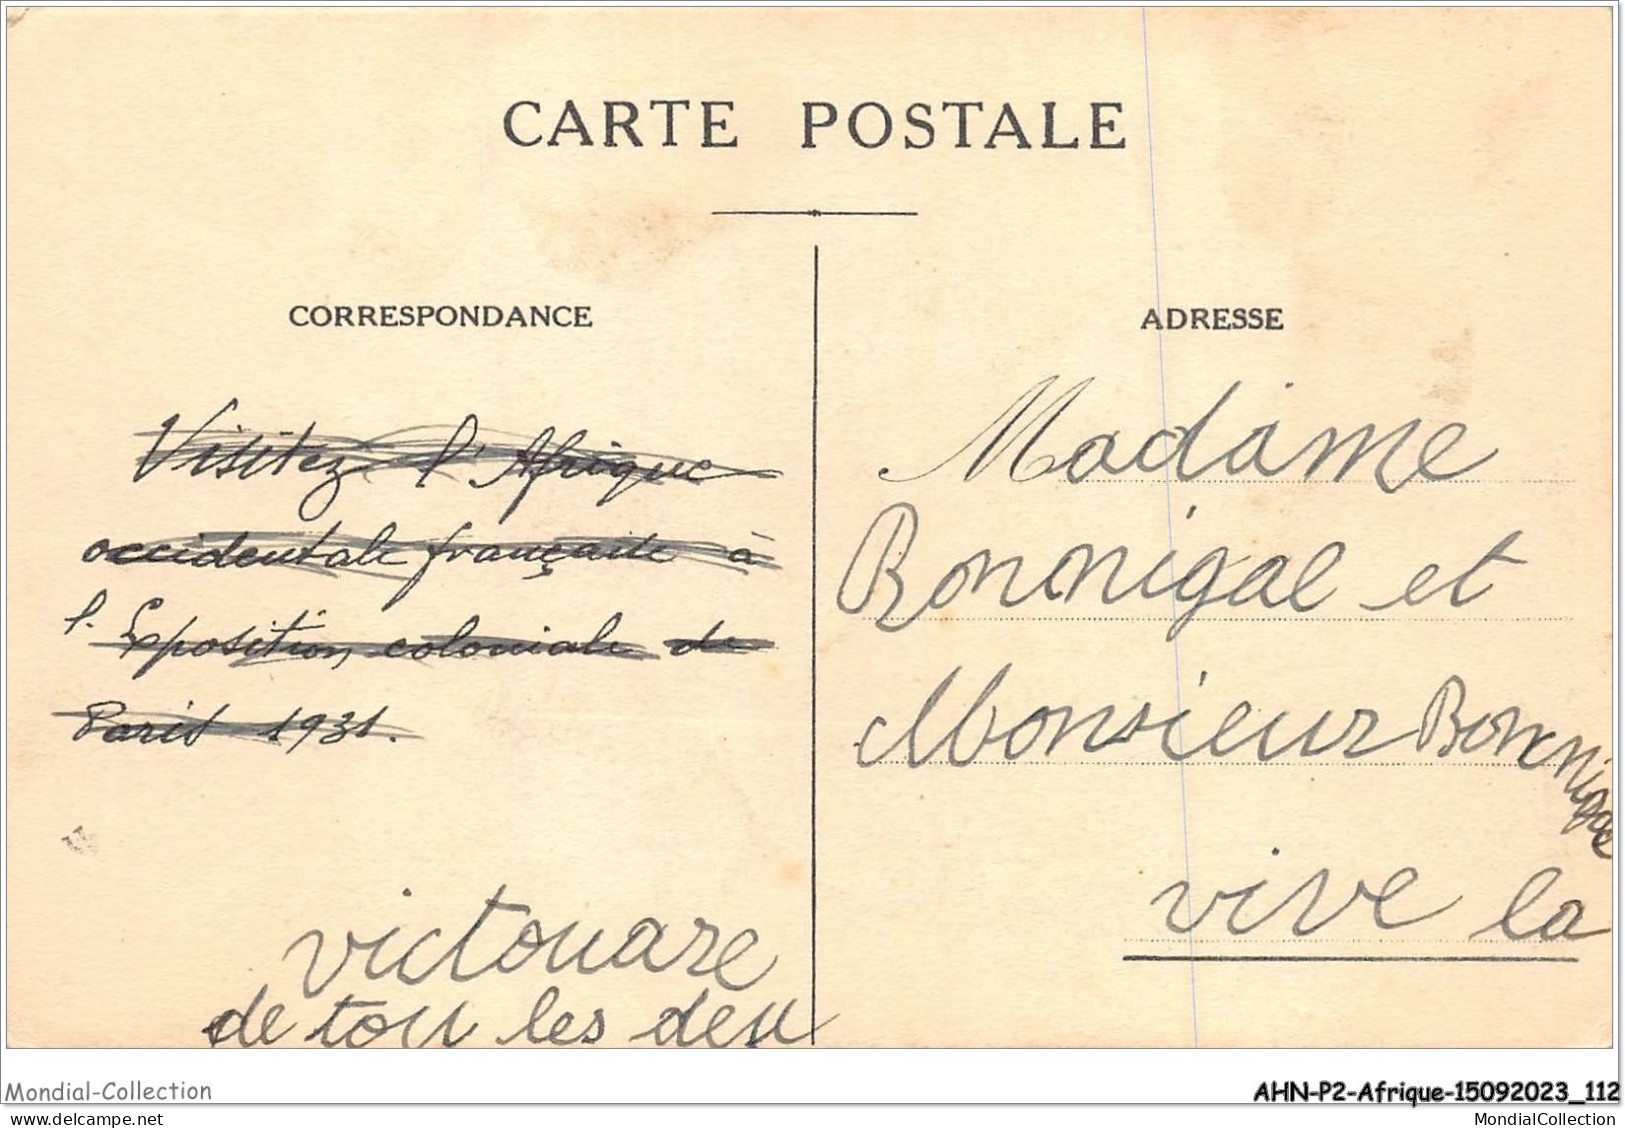 CARTE POSTALE
CORRESPONDANCE
Visitez l'Afrique
occidentale française à
l'Exposition coloniale de
Paris 1931.
victouare
de tou les deu
ADRESSE
Madame
Bonnigal et
Monsieur Bonnigal
vive la
Mondial-Collection
AHN-P2-Afrique-15092023_112
MondialCollection
MondialCollection